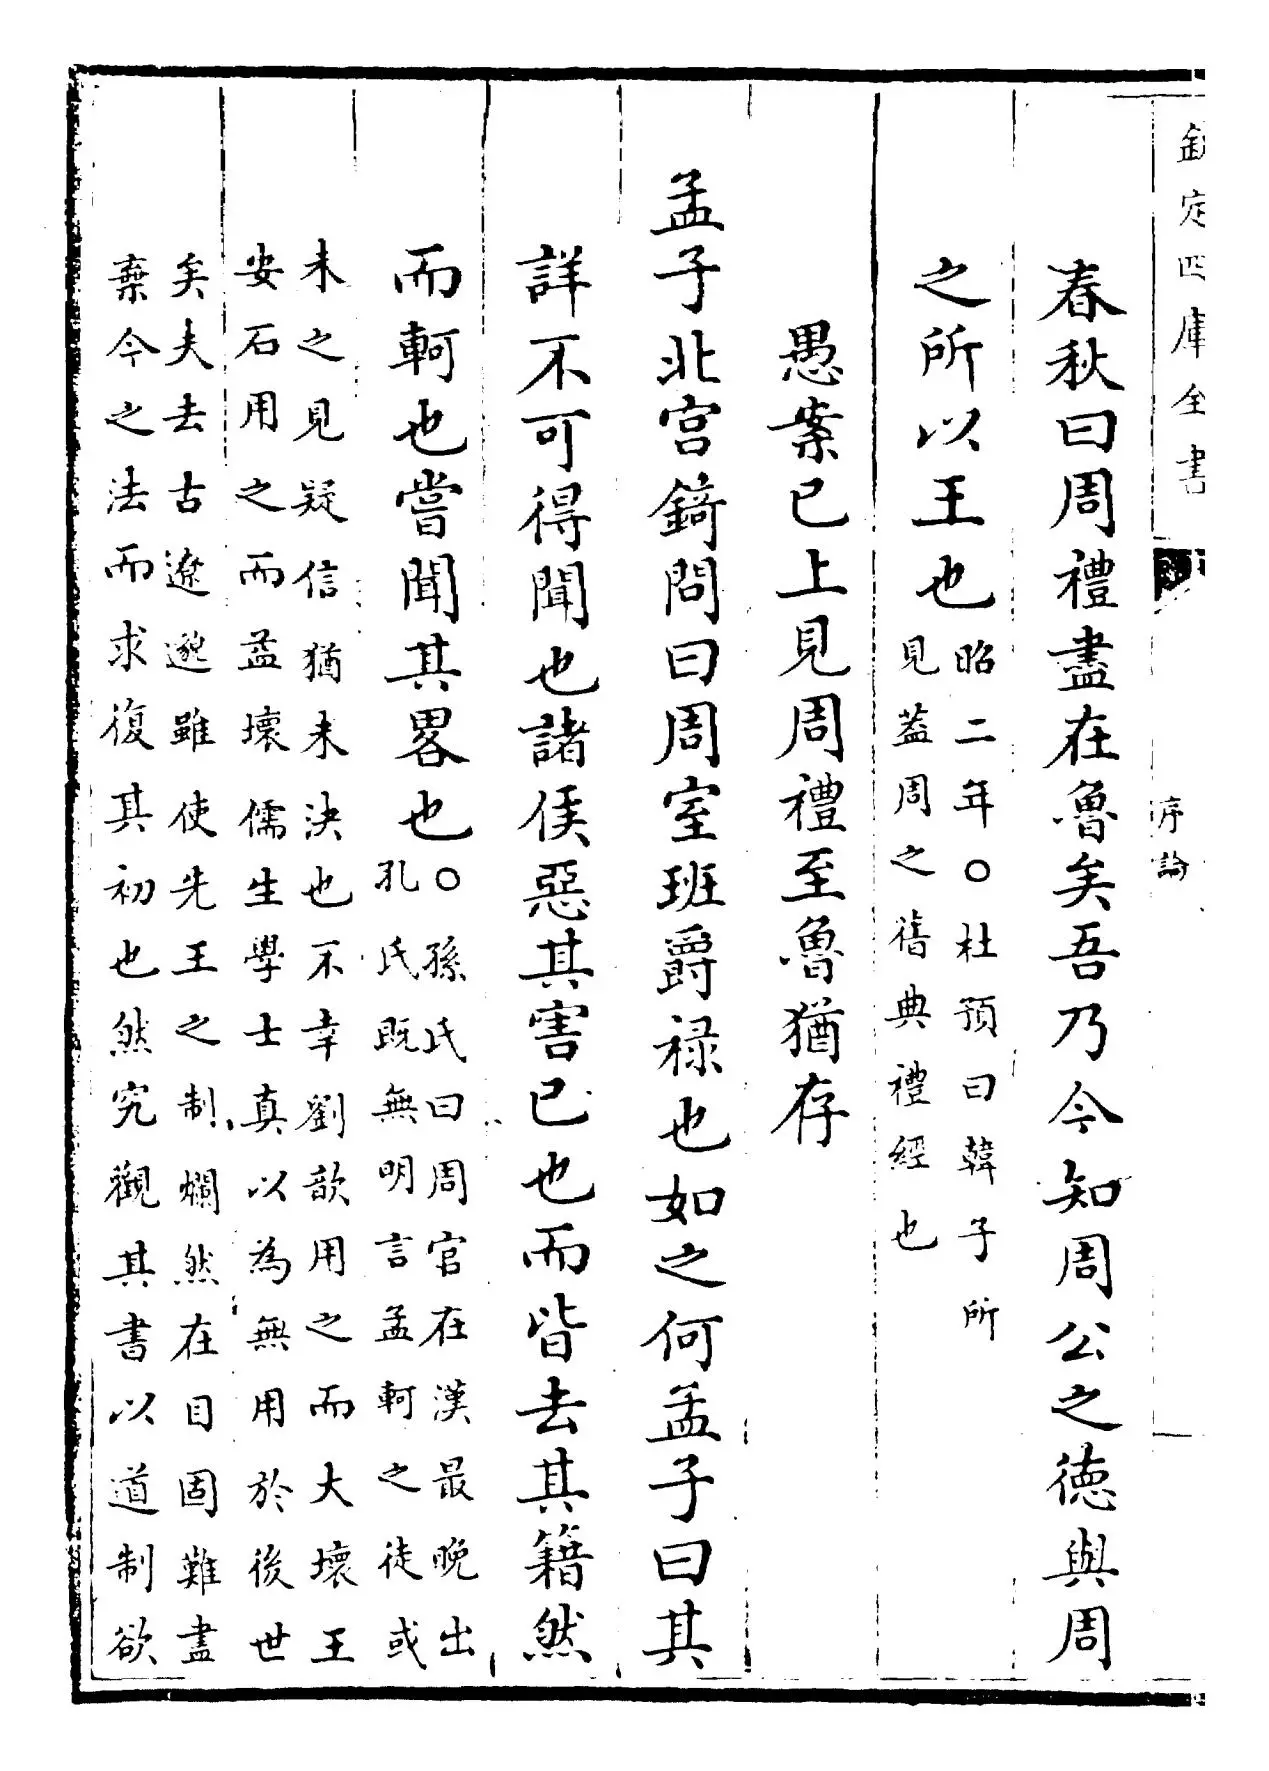 欽定四庫全書
序論
春秋曰周禮盡在魯矣吾乃今知周公之德與周
之所以王也
昭二年○杜預曰韓子所
見蓋周之舊典禮經也
愚案已上見周禮至魯猶存
孟子北宫錡問曰周室班爵禄也如之何孟子曰其
詳不可得聞也諸侯惡其害已也而皆去其籍然
而軻也嘗聞其畧也
○孫氏曰周官在漢最晚出
孔氏既無明言孟軻之徒或
未之見疑信猶未決也不幸劉歆用之而大壞王
安石用之而益壞儒生學士真以為無用於後世
矣夫去古遼邈雖使先王之制爛然在目固難盡
棄今之法而求復其初也然究觀其書以道制欲